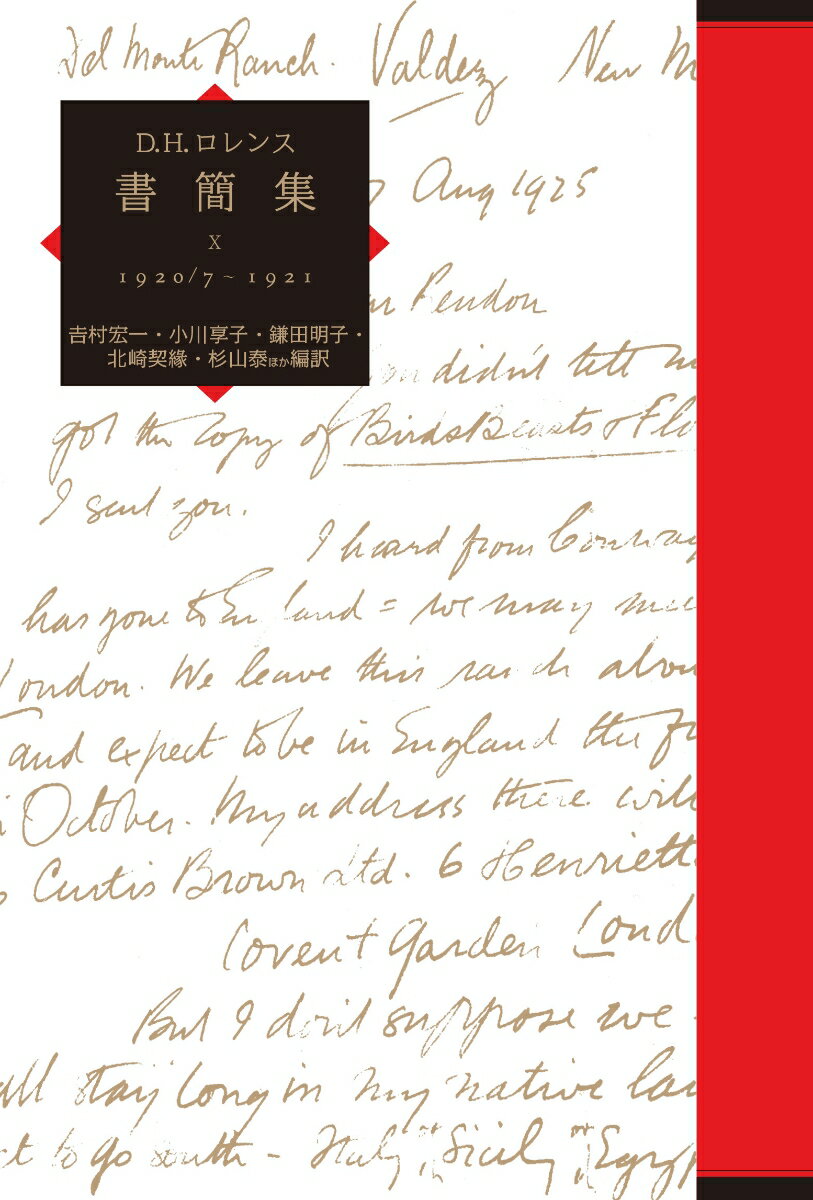 Del Monte Ranch. Valdez New M
D.H. ロレンス
書簡集
X
1920/7 ~ 1921
吉村宏一・小川享子・鎌田明子・
北崎契緣・杉山泰ほか編訳
Aug 1925
didn't tell
got the copy of Birds Beasts & Flo
I sent you.
I heard from Conway
has gone to England = we may mee
London. We leave this ranch abou
and expect to be in England the
October. My address there will
Curtis Brown Ltd. 6 Henriett
Covent Garden Lond
But I don't suppose we
all stay long in my native la
t to go south - Italy, Sicily, Egyp